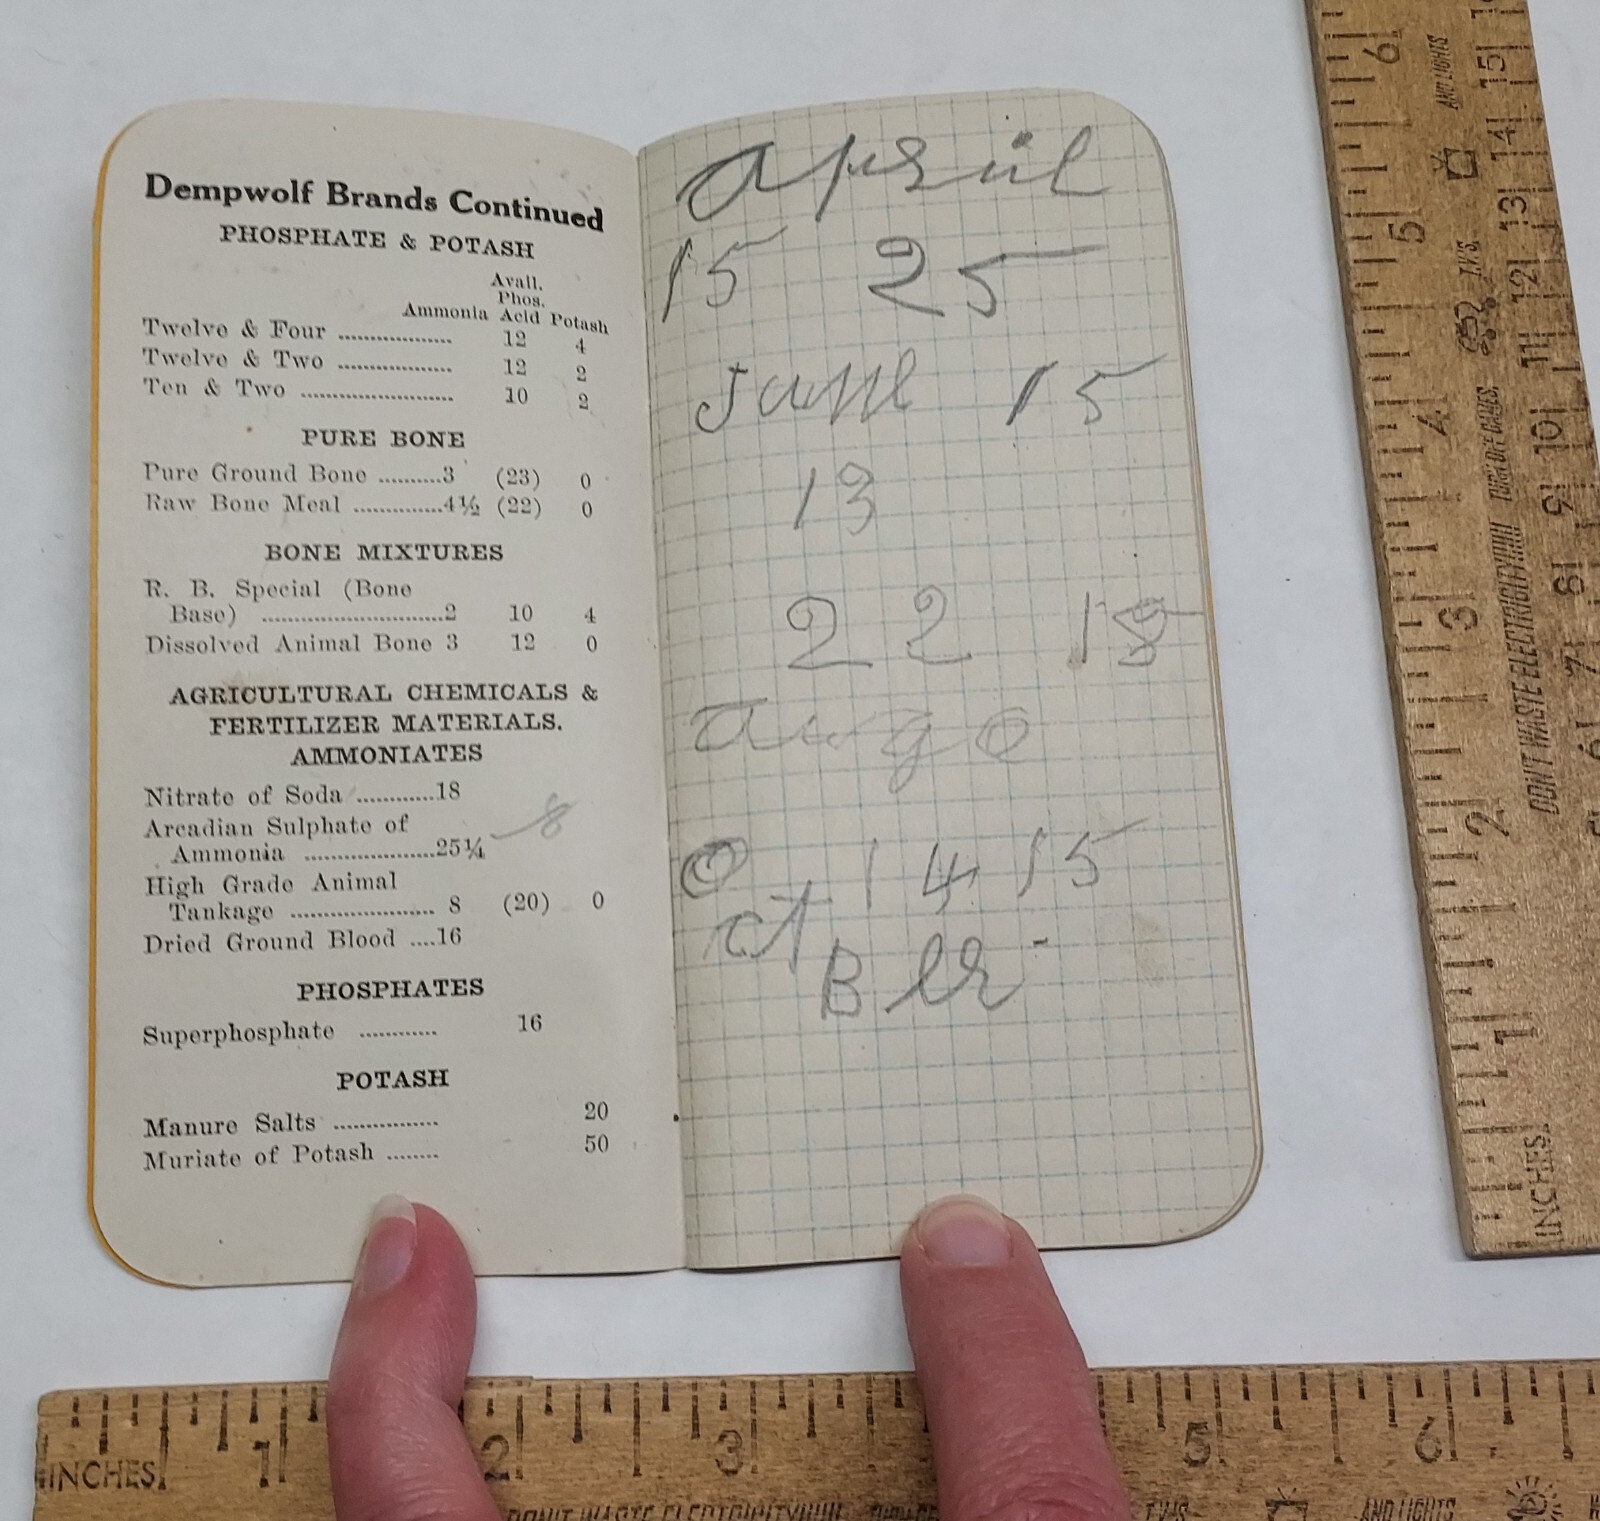 Dempwolf Brands Continued
PHOSPHATE & POTASH
Avail.
Phos.
Ammonia Acid Potash
Twelve & Four .................. 12 4
Twelve & Two .................. 12 2
Ten & Two ........................ 10 2
PURE BONE
Pure Ground Bone ..........3 (23) 0
Raw Bone Meal ..............4½ (22) 0
BONE MIXTURES
R. B. Special (Bone
Base) .............................2 10 4
Dissolved Animal Bone 3 12 0
AGRICULTURAL CHEMICALS &
FERTILIZER MATERIALS.
AMMONIATES
Nitrate of Soda ............18
Arcadian Sulphate of
Ammonia .....................25¼ 8
High Grade Animal
Tankage ....................... 8 (20) 0
Dried Ground Blood ....16
PHOSPHATES
Superphosphate ............ 16
POTASH
Manure Salts ................ 20
Muriate of Potash ........ 50
April
15 25
June 15
13
22
O 14 15
ct
B er
INCHES 1 2 3 5 6
DON'T WASTE ELECTRICITY!!!!!
T.V.S. AND LIGHTS
INCHES 1 2 3 4 5 6
DON'T WASTE ELECTRICITY!!!!! TURN OFF GAMES, T.V.S. AND LIGHTS
5 6 7 8 9 10 11 12 13 14 15